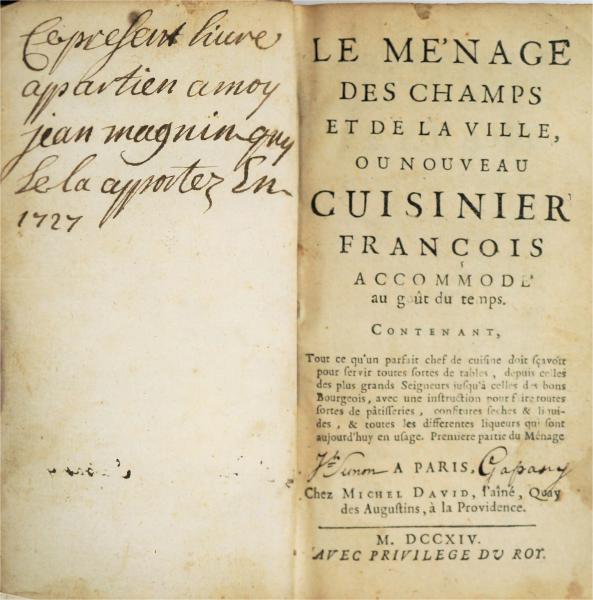 Ce present liure
appartien a moy
jean magnin quy
Le la apportez En
1727
LE ME'NAGE
DES CHAMPS
ET DE LA VILLE,
OU NOUVEAU
CUISINIER
FRANÇOIS
ACCOMMODE'
au goût du temps.
CONTENANT,
Tout ce qu'un parfait chef de cuisine doit sçavoir
pour servir toutes sortes de tables, depuis celles
des plus grands Seigneurs jusqu'à celles des bons
Bourgeois, avec une instruction pour faire toutes
sortes de pâtisseries, confitures seches & liqui-
des, & toutes les differentes liqueurs qui sont
aujourd'huy en usage. Premiere partie du Ménage
A PARIS,
Chez MICHEL DAVID, l'aîné, Quay
des Augustins, à la Providence.
M. DCCXIV.
AVEC PRIVILEGE DU ROY.